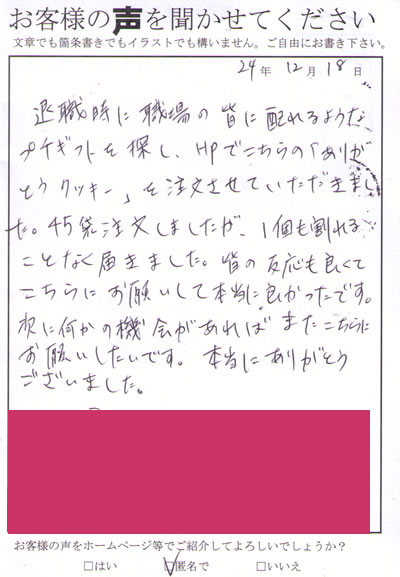 お客様の声を聞かせてください
文章でも箇条書きでもイラストでも構いません。ご自由にお書き下さい。
24年 12月 18日
退職時に職場の皆に配れるような、
プチギフトを探し、HPでこちらの「ありが
とうクッキー」を注文させていただきまし
た。45袋注文しましたが、1個も割れる
ことなく届きました。皆の反応も良くて
こちらにお願いして本当に良かったです。
次に何かの機会があればまたこちらに
お願いしたいです。本当にありがとう
ございました。
お客様の声をホームページ等でご紹介してよろしいでしょうか?
□はい ☑匿名で □いいえ